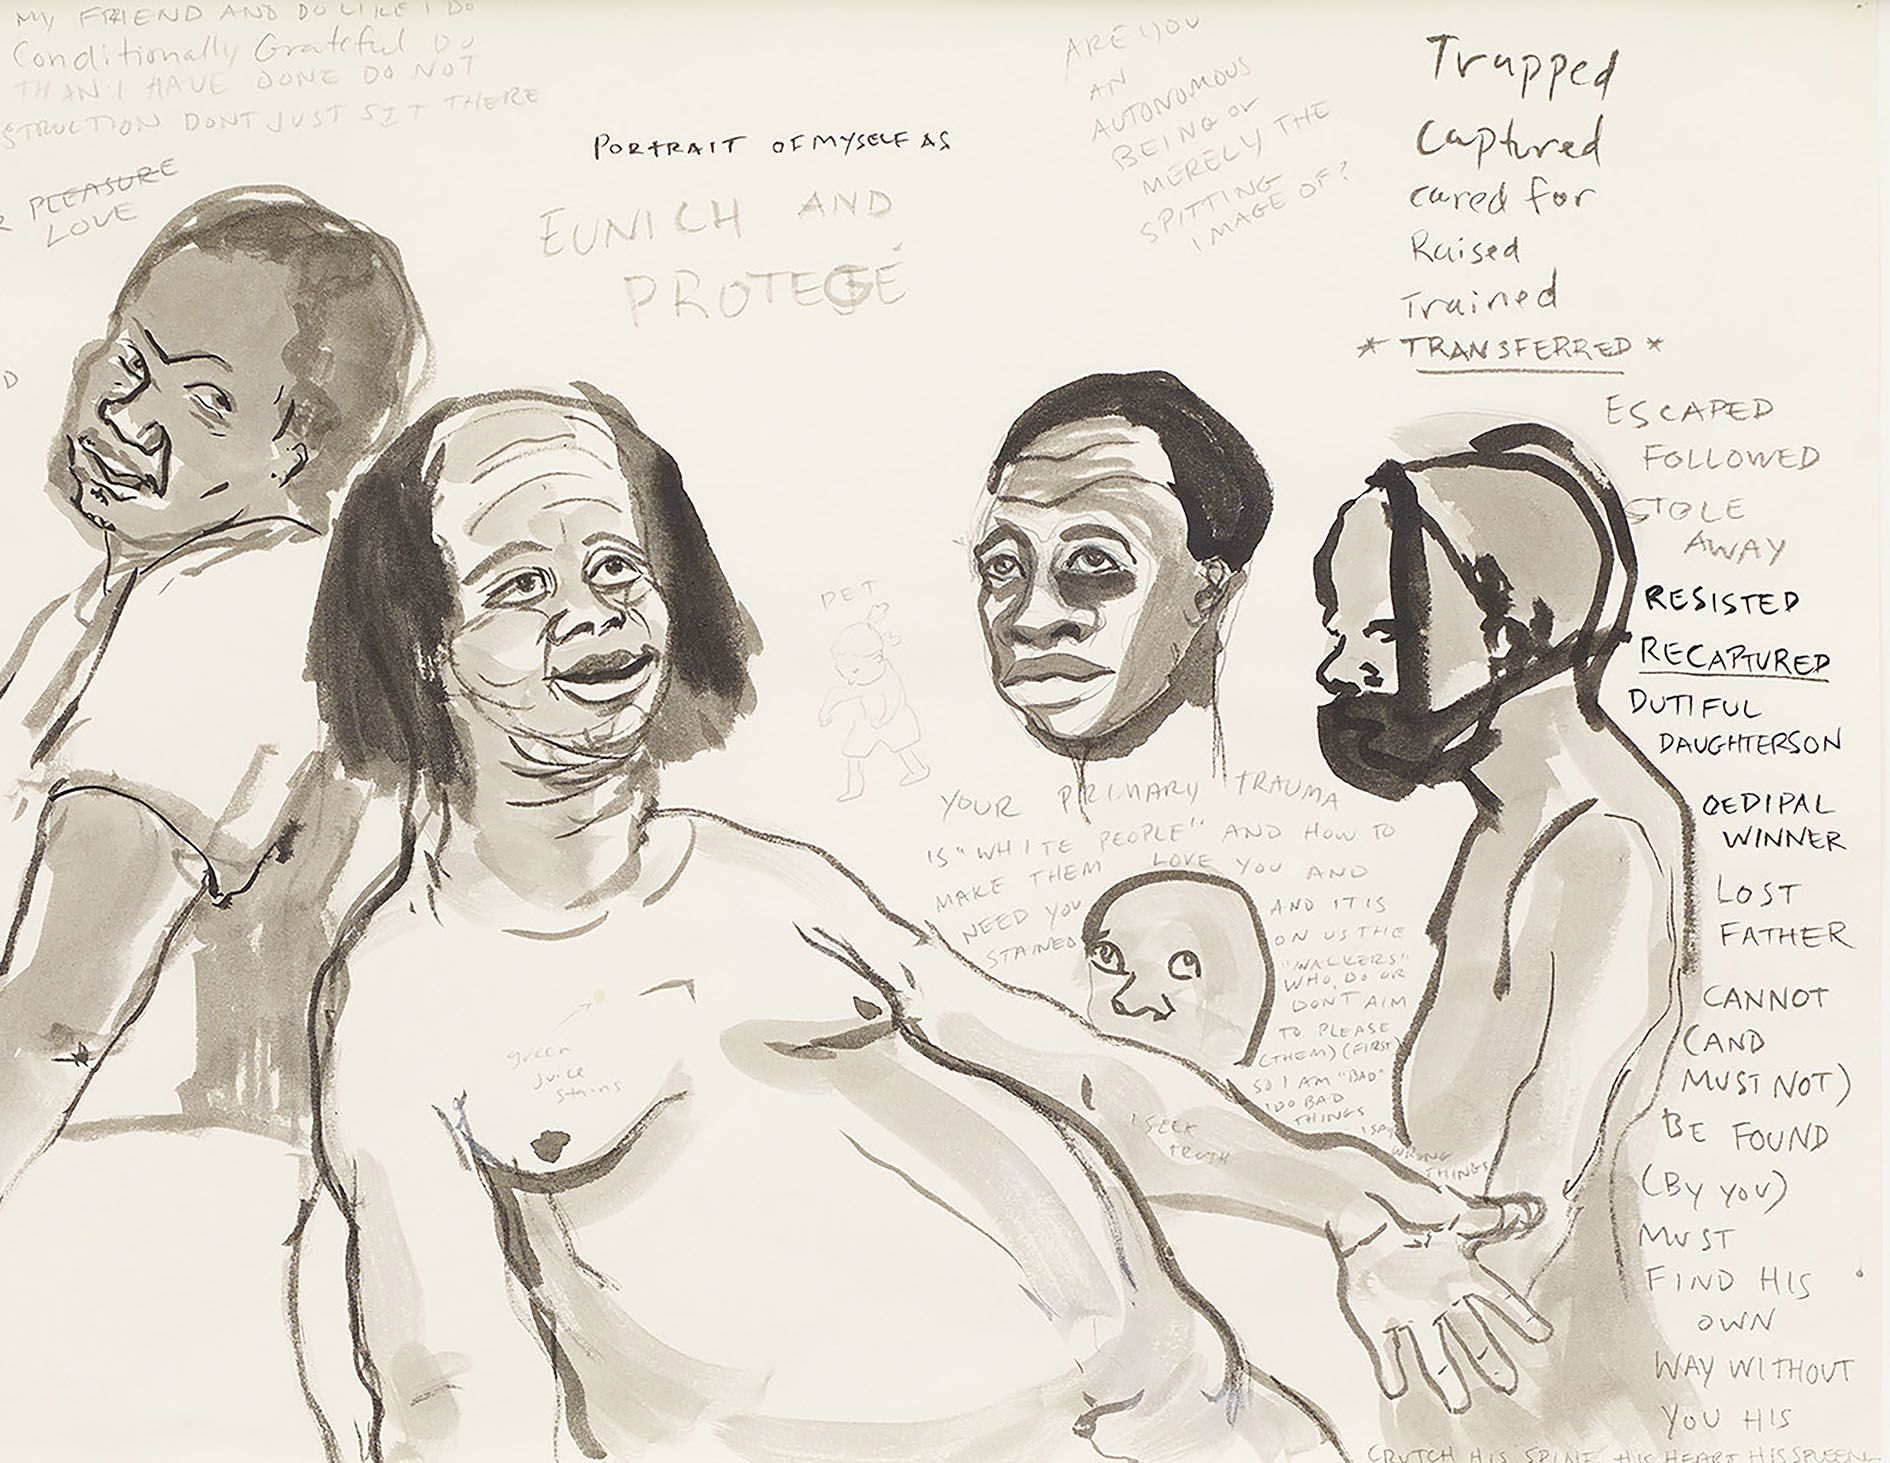 MY FRIEND AND DO LIKE I DO
Conditionally Grateful DO
THAN I HAVE DONE DO NOT
STRUCTION DONT JUST SIT THERE
R PLEASURE
LOVE
D
PORTRAIT OF MYSELF AS
EUNICH AND
PROTEGÉ
ARE YOU
AN
AUTONOMOUS
BEING or
MERELY THE
SPITTING
IMAGE OF?
Trapped
Captured
cared for
Raised
Trained
* TRANSFERRED *
ESCAPED
FOLLOWED
STOLE
AWAY
RESISTED
RECAPTURED
DUTIFUL
DAUGHTERSON
OEDIPAL
WINNER
LOST
FATHER
CANNOT
(AND
MUST NOT)
BE FOUND
(BY YOU)
MUST
FIND HIS
OWN
WAY WITHOUT
YOU HIS
CRUTCH HIS SPINE HIS HEART HIS SPLEEN
PET
YOUR PRIMARY TRAUMA
IS "WHITE PEOPLE" AND HOW TO
MAKE THEM LOVE YOU AND
NEED YOU
STAINED
AND IT IS
ON US THE
"WALKERS"
WHO, DO OR
DONT AIM
TO PLEASE
(THEM) (FIRST)
SO I AM "BAD"
I DO BAD
THINGS
I SAY
WRONG
THINGS
I SEEK
TRUTH
green
juice
stains